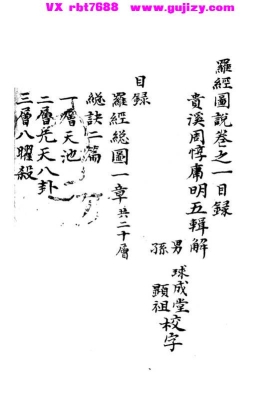 VX rbt7688 www.gujizy.com
羅經圖說卷之一目録
貴溪周惇庸明五輯解
男球成堂
孫顕祖
校字
目録
羅經総圖一章共二十層
総訣二篇
一層天池
二層先天八卦
三層八曜殺